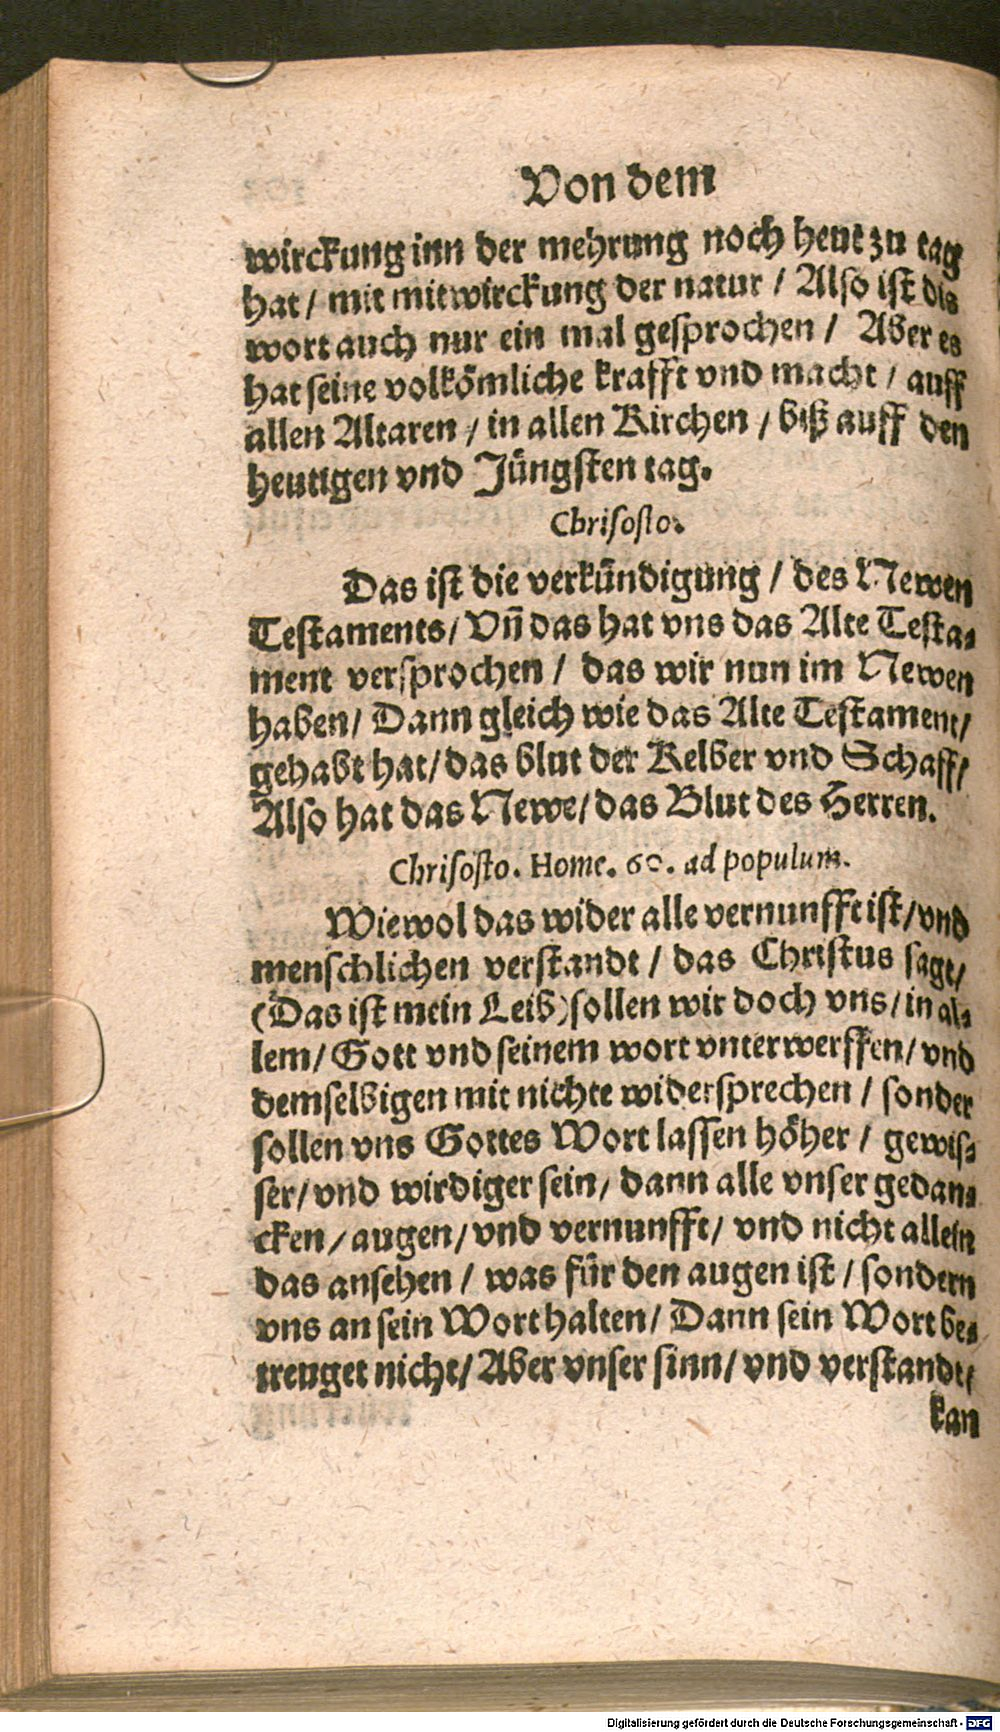 Von dem
wirckung inn der mehrung noch heut zu tag
hat / mit mitwirckung der natur / Also ist dis
wort auch nur ein mal gesprochen / Aber es
hat seine volkömliche krafft vnd macht / auff
allen Altaren / in allen Kirchen / biß auff den
heutigen vnd Jüngsten tag.
Chrisosto.
Das ist die verkündigung / des Newen
Testaments / Vñ das hat vns das Alte Testa-
ment versprochen / das wir nun im Newen
haben / Dann gleich wie das Alte Testament /
gehabt hat / das blut der Kelber vnd Schaff /
Also hat das Newe / das Blut des Herren.
Chrisosto. Home. 60. ad populum.
Wiewol das wider alle vernunfft ist / vnd
menschlichen verstandt / das Christus sagt /
(Das ist mein Leib) sollen wir doch vns / in al-
lem / Gott vnd seinem wort vnterwerffen / vnd
demselbigen mit nichte widersprechen / sonder
sollen vns Gottes Wort lassen höher / gewis-
ser / vnd wirdiger sein / dann alle vnser gedan-
cken / augen / vnd vernunfft / vnd nicht allein
das ansehen / was für den augen ist / sondern
vns an sein Wort halten / Dann sein Wort be-
treuget nicht / Aber vnser sinn / vnd verstandt /
kan
Digitalisierung gefördert durch die Deutsche Forschungsgemeinschaft - DFG